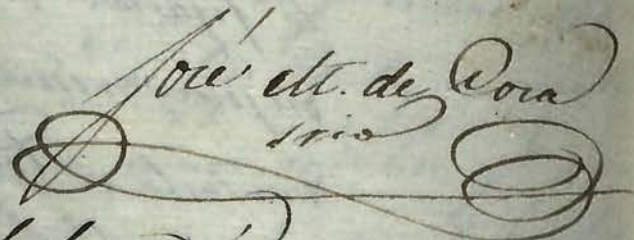 José M. de Cora
srio